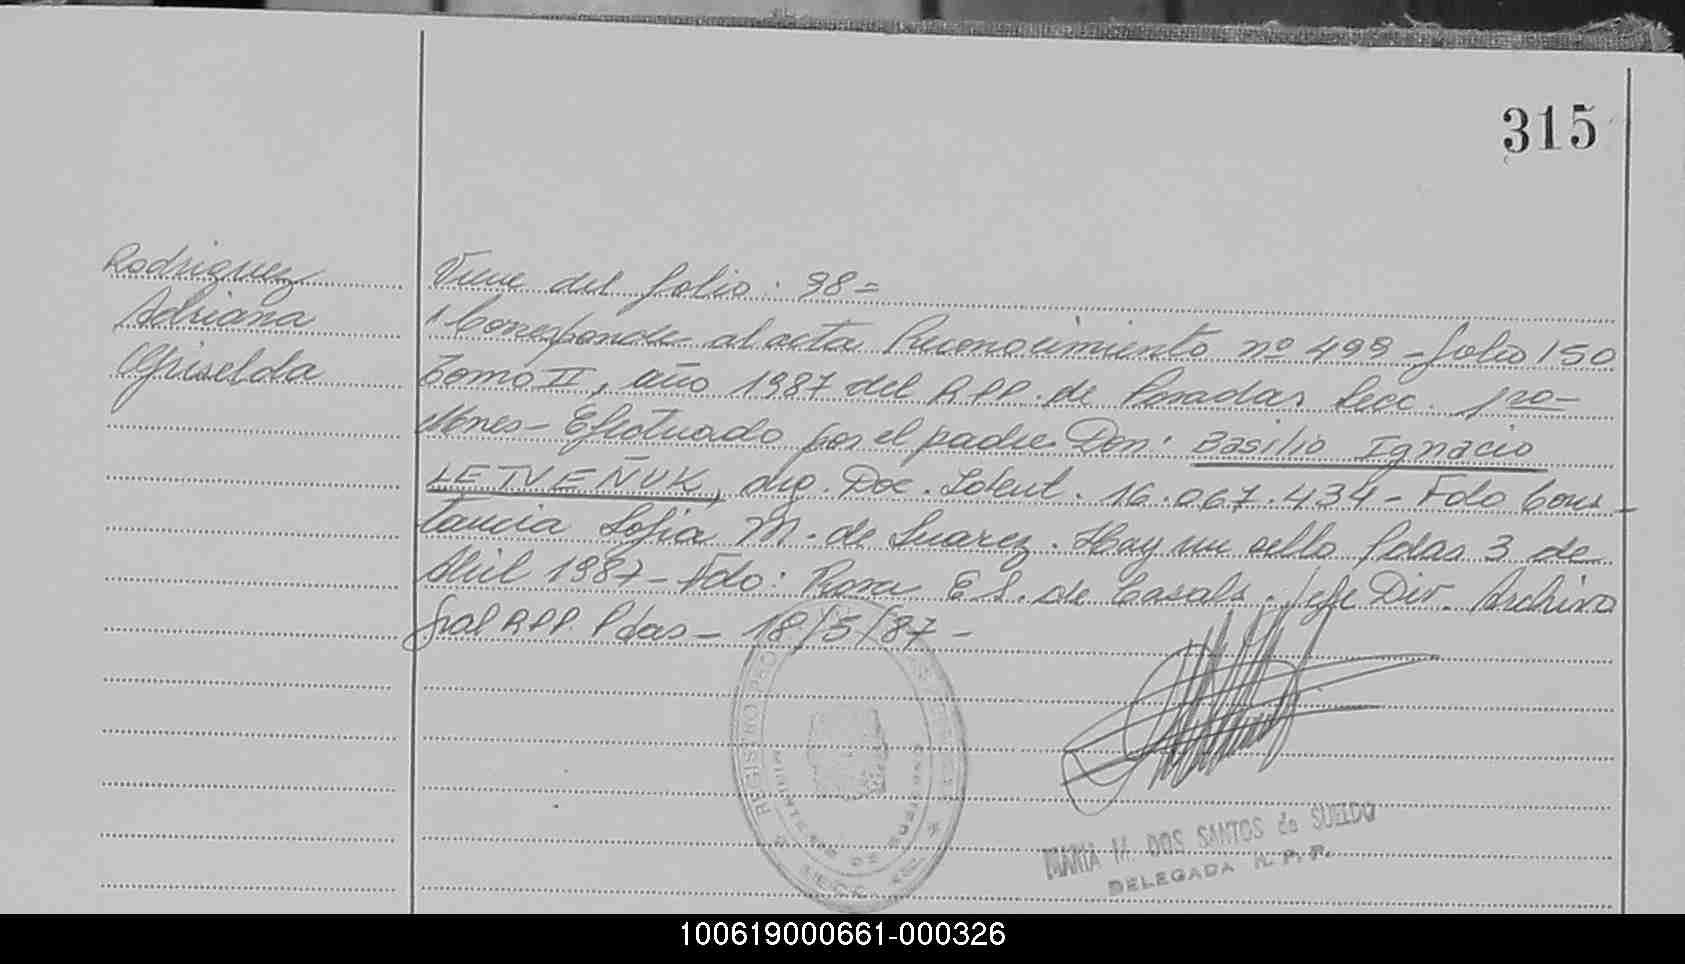 315
Rodriguez
Adriana
Griselda
Viene del folio: 98=
Corresponde al acta Reconocimiento nº 499 - folio 150
Tomo II, año 1987 del RPP. de Posadas Secc. 1ra-
Mnes- Efectuado por el padre Don: Basilio Ignacio
LETVEÑUK, Doc. Ident. 16.067.434- Fdo Cons-
tancia Sofia M. de Suarez. Hay un sello Pdas 3 de
Abril 1987- Fdo: Rosa E S. de Casals. Jefe Div. Archivo
Gral RPP Pdas- 18/5/87-
REGISTRO
MARIA M. DOS SANTOS de SUELDO
DELEGADA R. P. P.
100619000661-000326